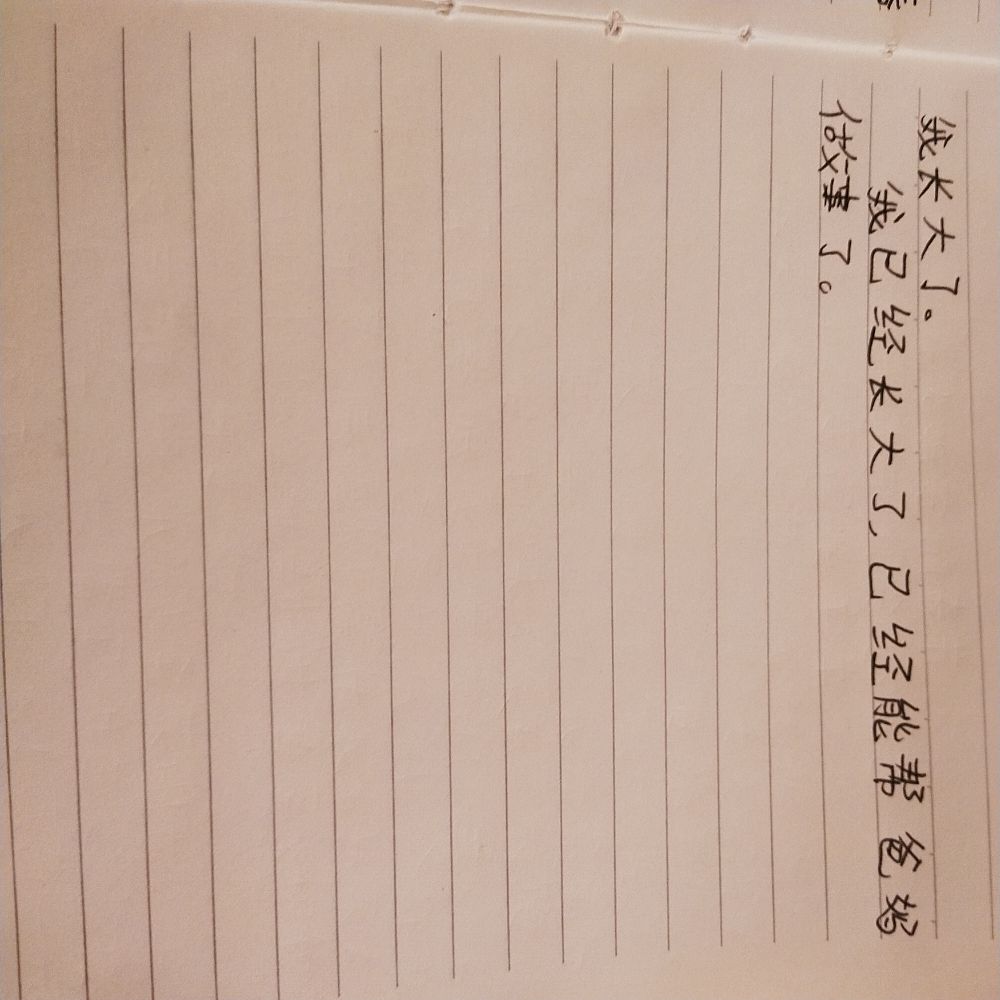 我长大了。
我已经长大了,已经能帮爸妈
做事了。